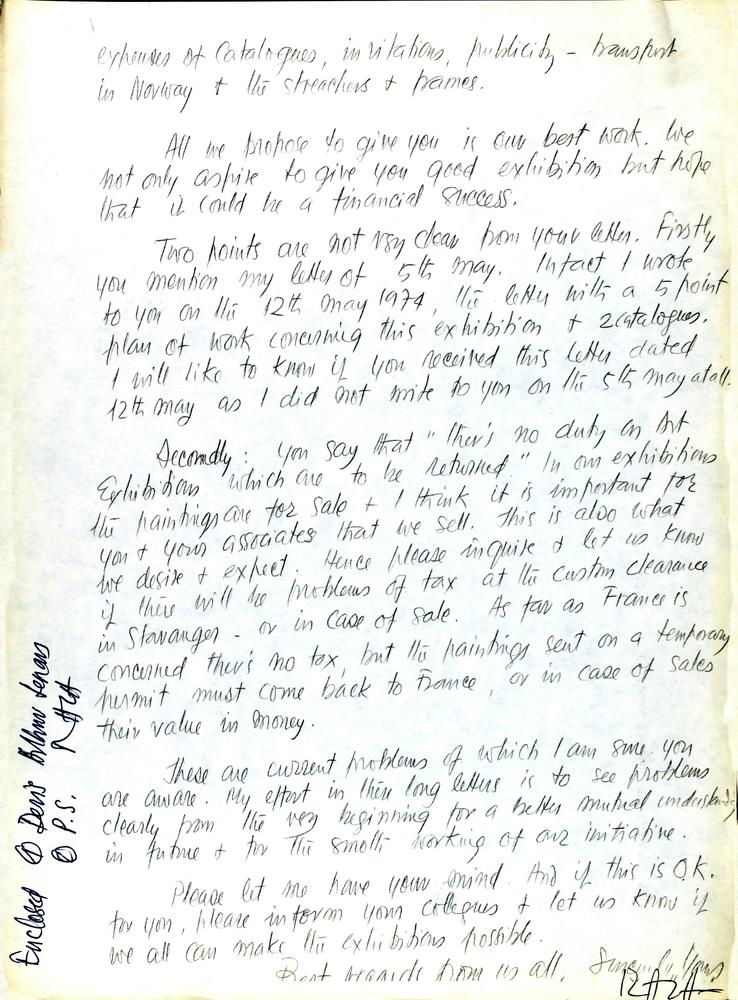 expenses of Catalogues, invitations, publicity - transport
in Norway + the streachers + frames.
All we propose to give you is our best work. We
not only aspire to give you good exhibition but hope
that it could be a financial success.
Two points are not very clear from your letter. Firstly
you mention my letter of 5th may. Infact I wrote
to you on the 12th may 1974, the letter with a 5 point
plan of work concerning this exhibition + 2 catalogues.
I will like to know if you received this letter dated
12th may as I did not write to you on the 5th may at all.
Secondly: you say that "there's no duty on Art
Exhibitions which are to be returned" In our exhibitions
the paintings are for sale + I think it is important for
you + your associates that we sell. This is also what
we desire + expect. Hence please inquire + let us know
if there will be problems of tax at the custom clearance
in Stavanger - or in case of sale. As far as France is
concerned there's no tax, but the paintings sent on a temporary
permit must come back to France, or in case of sales
their value in money.
These are current problems of which I am sure you
are aware. My effort in these long letters is to see problems
clearly from the very beginning for a better mutual understanding
in future + for the smooth working of our initiative.
Please let me have your mind. And if this is O.K.
for you, please inform your collegues + let us know if
we all can make the exhibitions possible.
Best regards from us all, Sincerely Yours
Enclosed ①
② P.S.